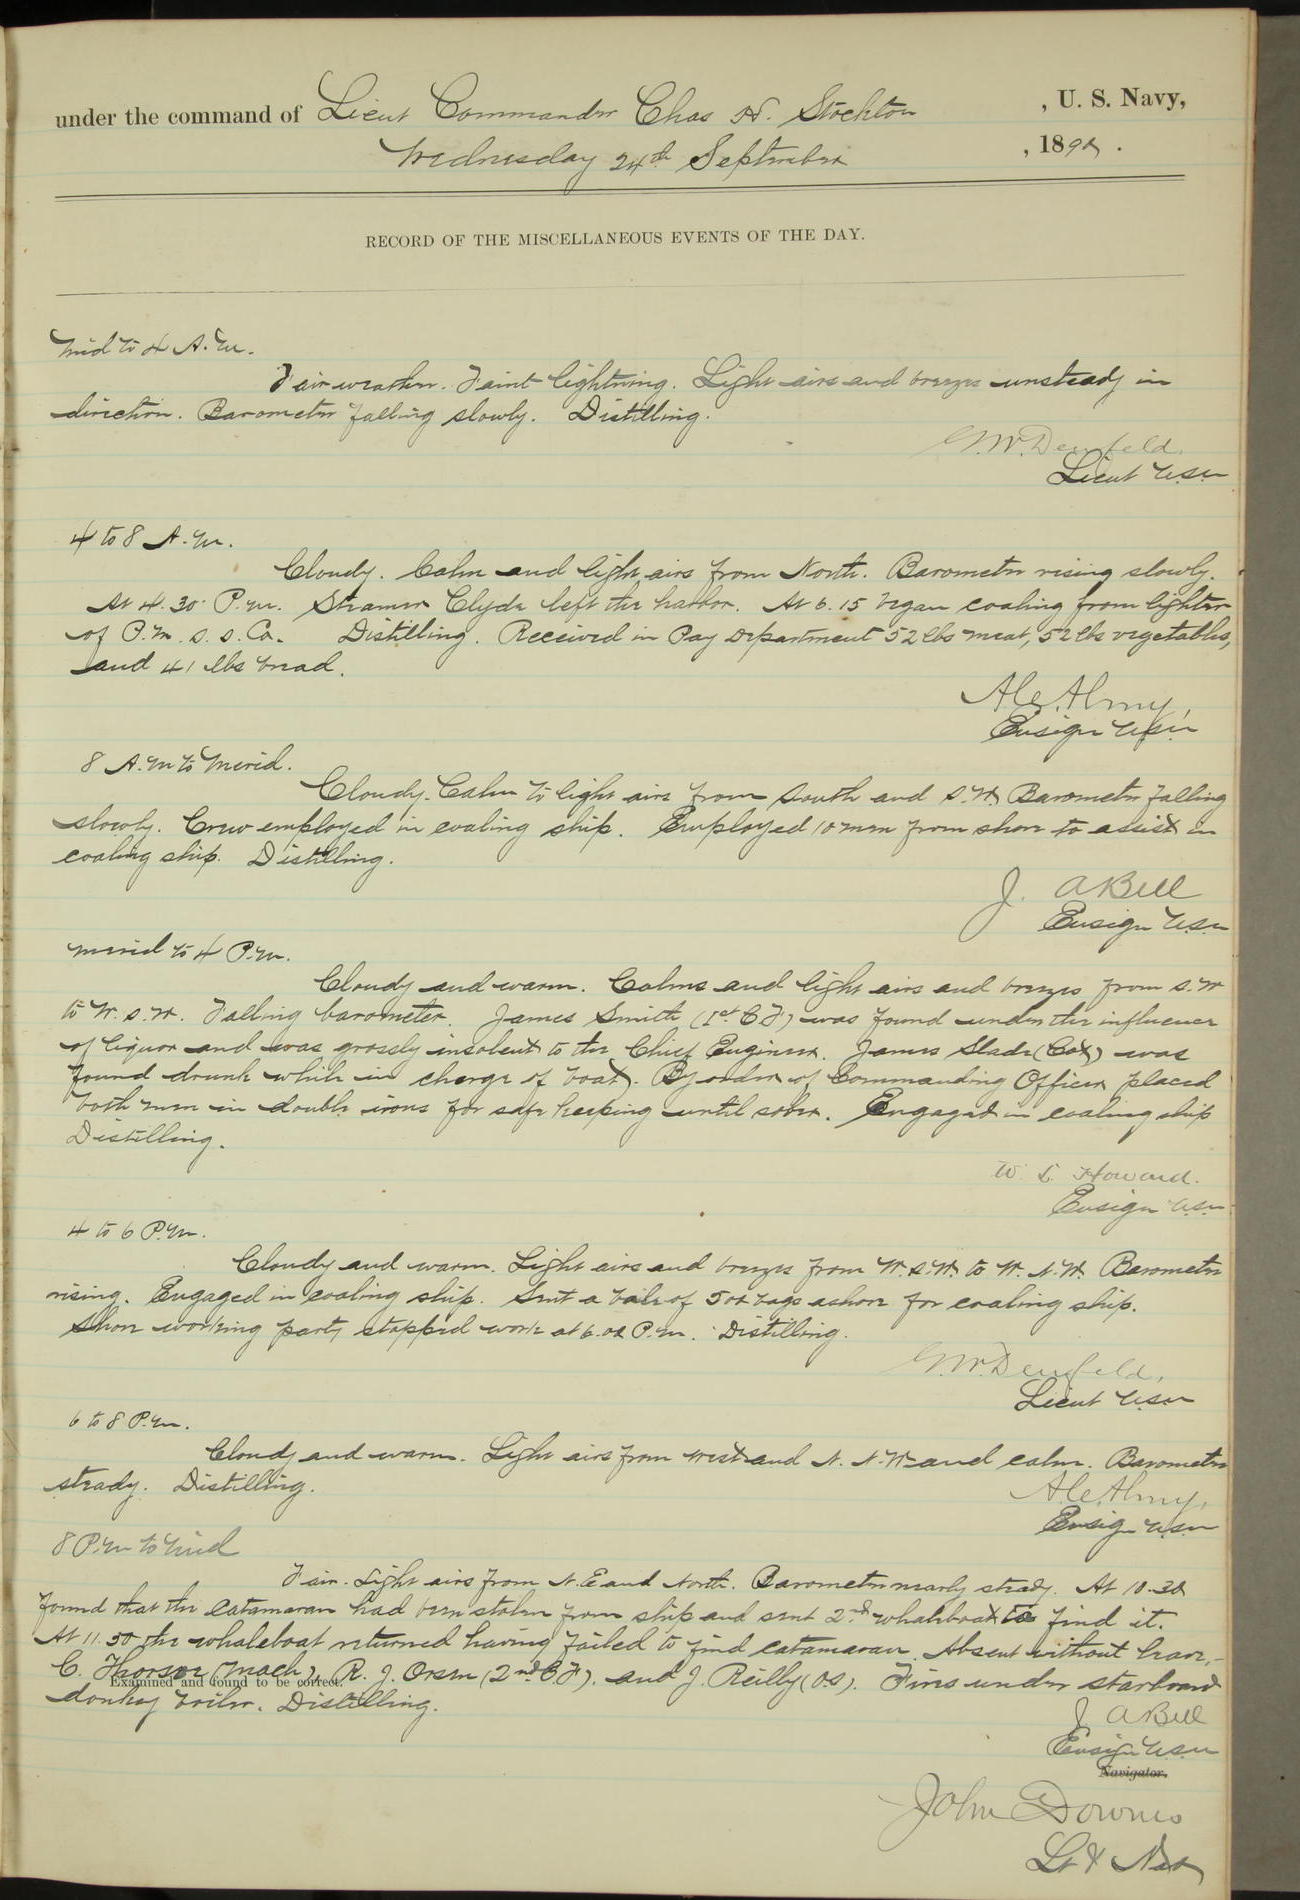 under the command of Lieut Commander Chas H. Stockton , U. S. Navy,
Wednesday 24th September , 1890.
RECORD OF THE MISCELLANEOUS EVENTS OF THE DAY.
Mid to 4 A.M.
Fair weather. Faint lightning. Light airs and breezes unsteady in
direction. Barometer falling slowly. Distilling.
G.W. Denfeld.
Lieut USN
4 to 8 A.M.
Cloudy. Calm and light airs from North. Barometer rising slowly.
At 4.30 P.M. Steamer Clyde left the harbor. At 6.15 began coaling from lighter
of P.M. S. S. Co. Distilling. Received in Pay Department 52 lbs meat, 52 lbs vegetables,
and 41 lbs bread.
A.C. Almy,
Ensign USN
8 A.M to Merid.
Cloudy. Calm to light airs from South and S.W. Barometer falling
slowly. Crew employed in coaling ship. Employed 10 men from shore to assist in
coaling ship. Distilling.
J. A Bell
Ensign USN
Merid to 4 P.M.
Cloudy and warm. Calms and light airs and breezes from S.W
to W.S.W. Falling barometer. James Smith (1st C F) was found under the influence
of liquor and was grossly insolent to the Chief Engineer. James Slade (Cox) was
found drunk while in charge of boat. By order of Commanding Officer placed
both men in double irons for safe keeping until sober. Engaged in coaling ship
Distilling.
W. L. Howard.
Ensign USN
4 to 6 P.M.
Cloudy and warm. Light airs and breezes from W.S.W. to W.N.W. Barometer
rising. Engaged in coaling ship. Sent a bale of 500 bags ashore for coaling ship.
Shore working party stopped work at 6.00 P.M. Distilling.
G.W. Denfeld,
Lieut USN
6 to 8 P.M.
Cloudy and warm. Light airs from West and N.N.W and calm. Barometer
steady. Distilling.
A.C. Almy,
Ensign USN
8 P.M to Mid
Fair. Light airs from N.E and North. Barometer nearly steady. At 10.30
found that the catamaran had been stolen from ship and sent 2nd whaleboat to find it.
At 11.50 the whaleboat returned having failed to find catamaran. Absent without leave,-
C. Thorsor (Mach), R. J. Orsen (2nd C F). and J. Reilly (O.S). Fires under starboard
Examined and found to be correct.
donkey boiler. Distilling.
J. A Bell
Ensign USN
Navigator.
John Downes
Lt & Nav